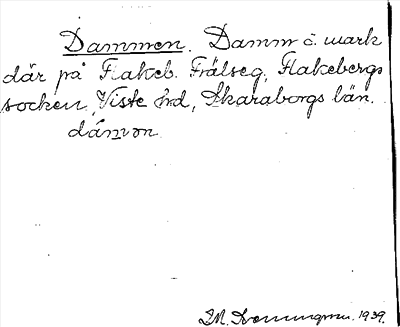 Dammen. Damm o. mark
där på Flakeb. Frälseg., Flakebergs
socken, Viste hrd, Skaraborgs län.
dámon
1939.